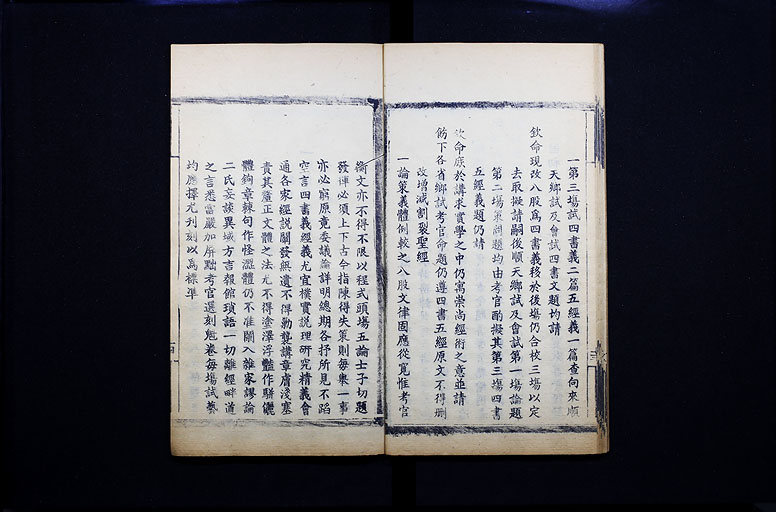 一第三場試四書義二篇五經義一篇查向來順
天鄉試及會試四書文題均請
欽命現改八股為四書義移於後塲仍合校三塲以定
去取擬請嗣後順天鄉試及會試第一塲論題
第二塲策問題均由考官酌擬其第三塲四書
五經義題仍請
欽命庶於講求實學之中仍寓崇尚經術之意並請
飭下各省鄉試考官命題仍遵四書五經原文不得刪
改增減割裂聖經
一論策義體例較之八股文律固應從寬惟考官
衡文亦不得不限以程式頭塲五論士子切題
發揮必須上下古今指陳得失策則每舉一事
亦必窮原竟委議論詳明總期各抒所見不蹈
空言四書義經義尤宜樸實說理研究精義會
通各家經說闡發無遺不得勦襲講章膚淺塞
責其釐正文體之法尤不得塗澤浮豔作駢儷
體鉤章棘句作怪澀體仍不准闌入雜家謬論
二氏妄談異域方言報館瑣語一切離經畔道
之言悉當嚴加屏黜考官選刻魁卷每塲試藝
均應擇尤刋刻以為標準